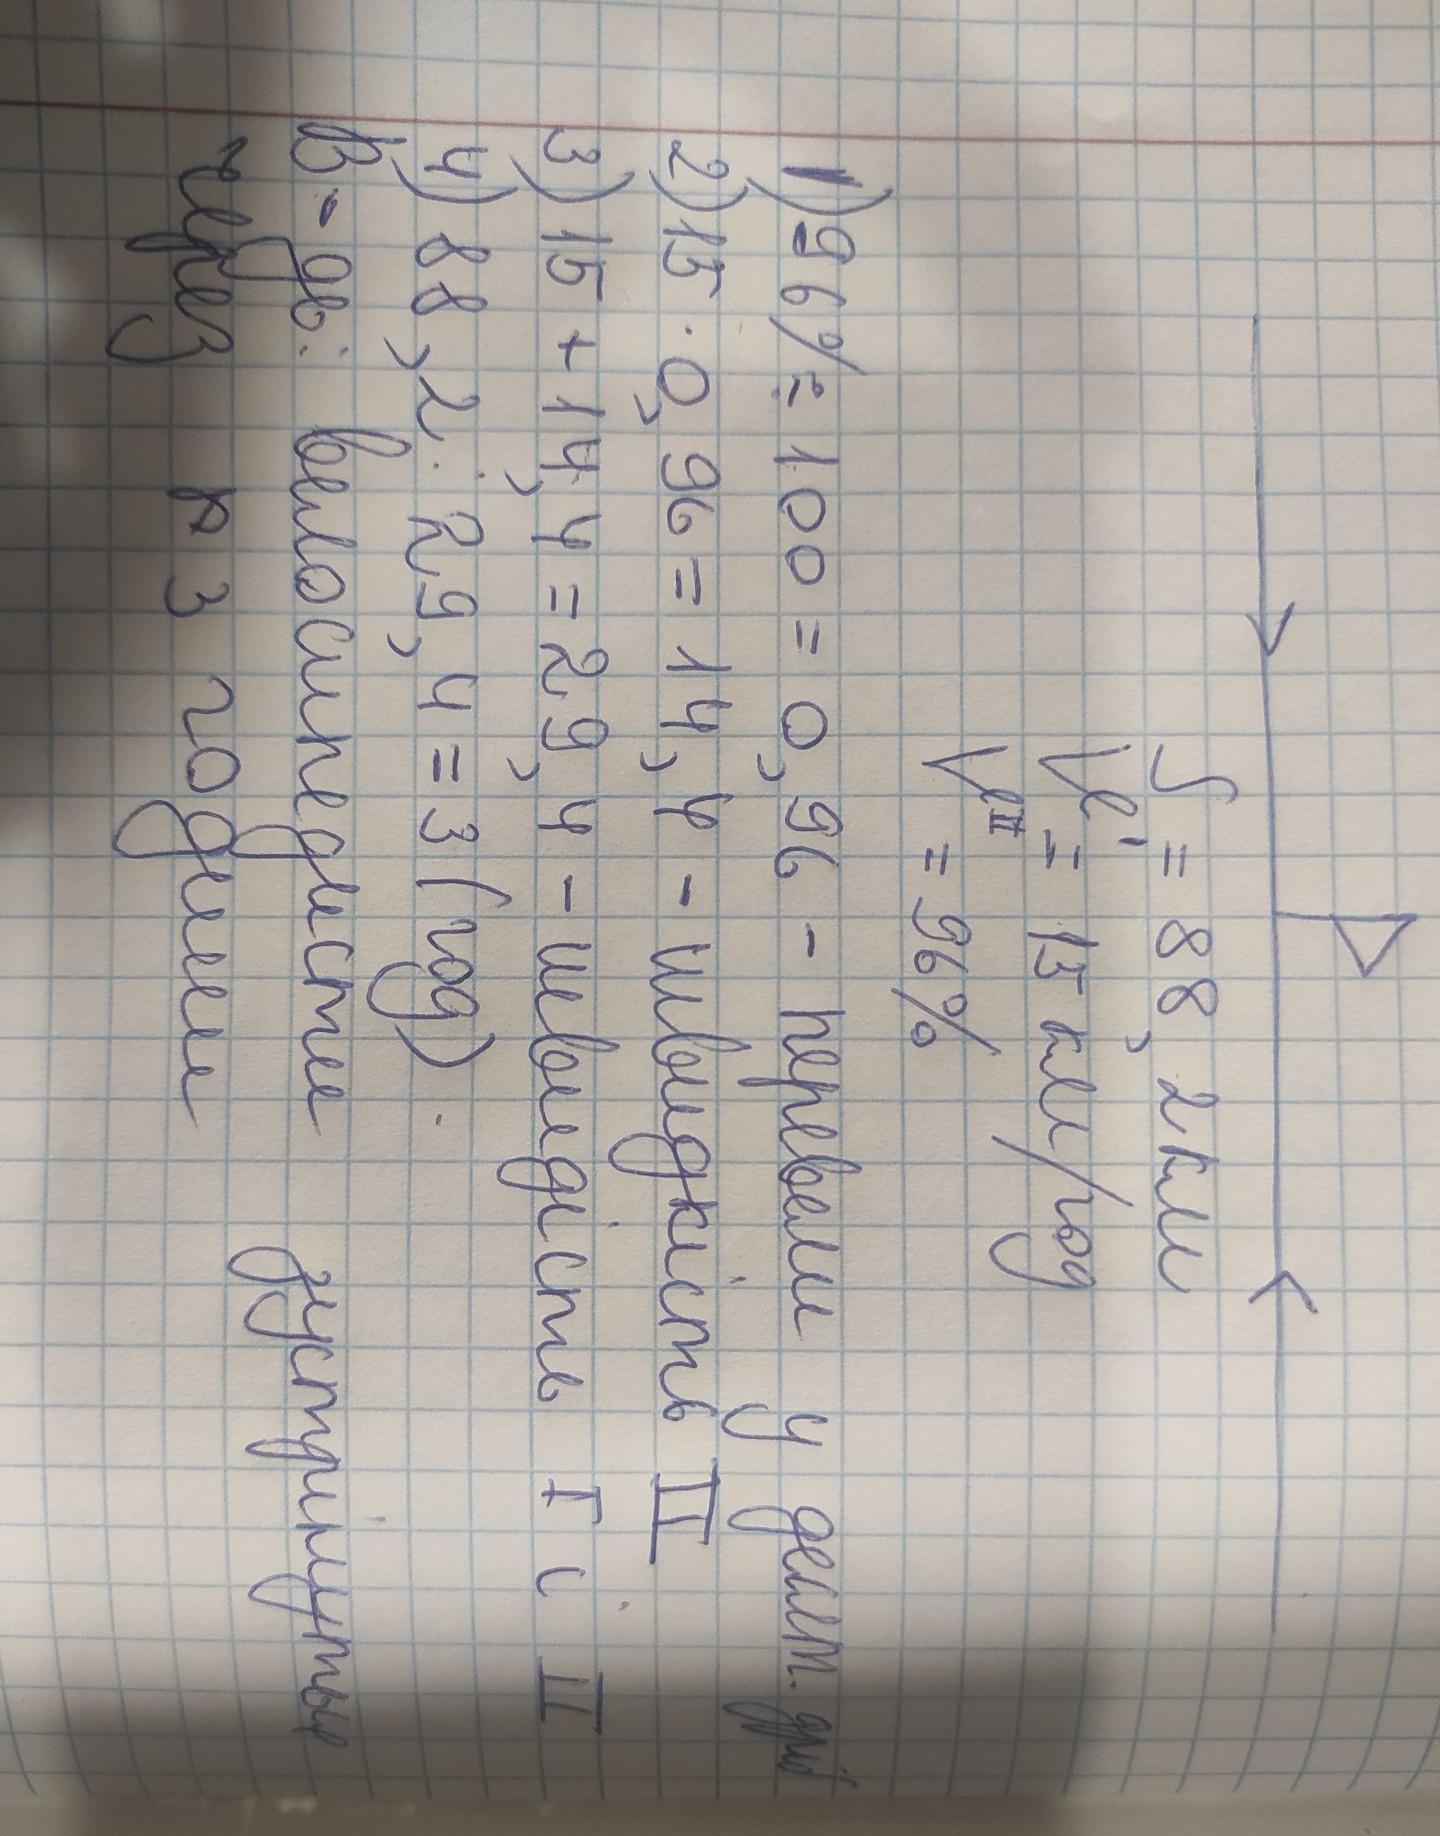 S = 88,2 км
Vв I = 15 км/год
Vв II = 96%
1) 96% : 100 = 0,96 - перевели у десят. дріб
2) 15 · 0,96 = 14,4 - швидкість II
3) 15 + 14,4 = 29,4 - швидкість I і II
4) 88,2 : 29,4 = 3 (год).
В-дь: велосипедисти зустрінуться
через 3 години